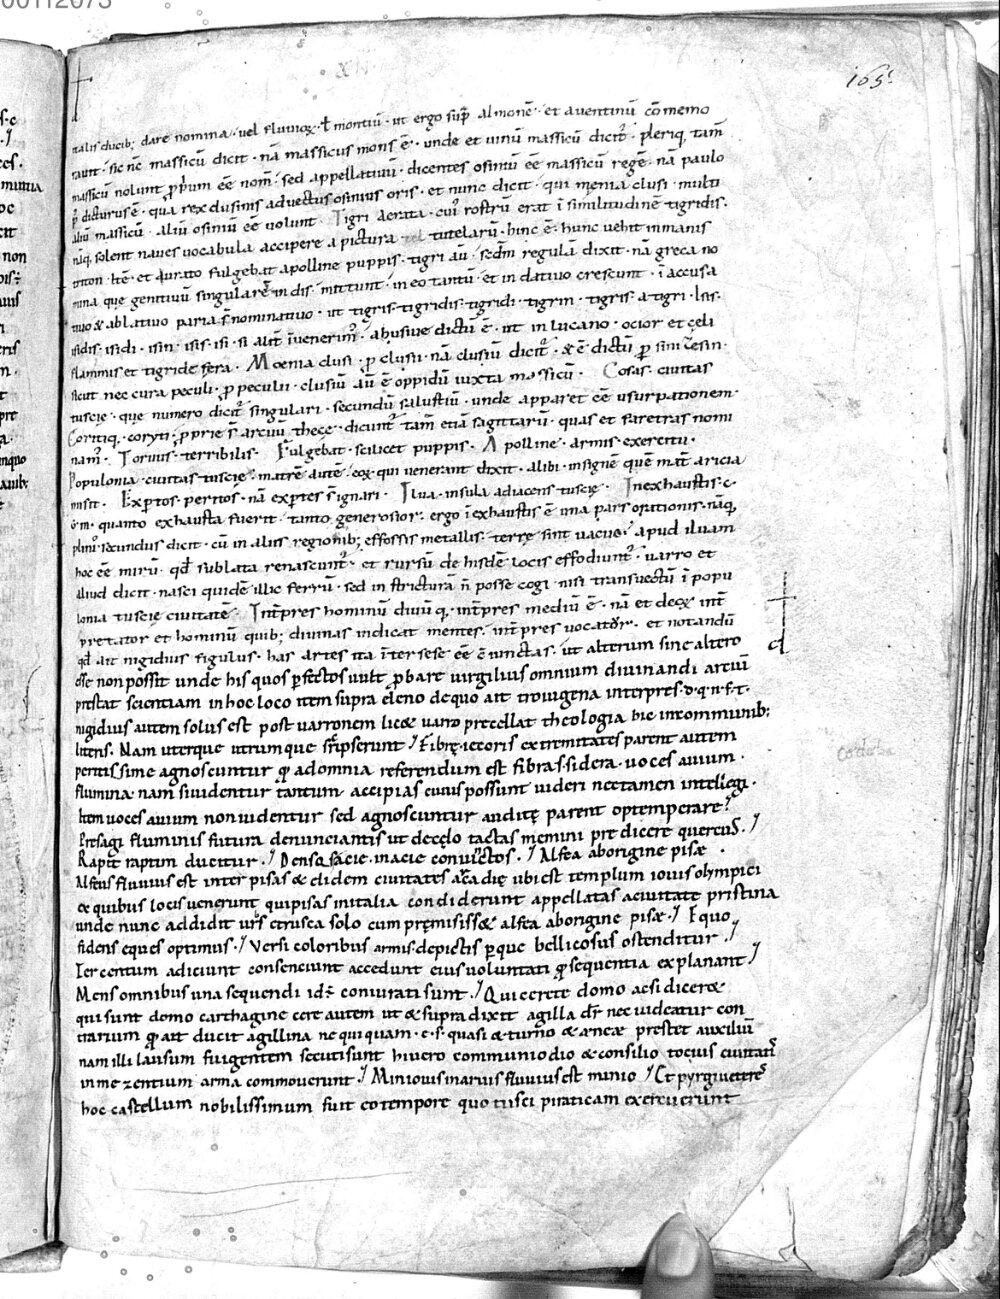 00112073
165
nalis ducib; dare nomina· vel fluuioꝝ· ł montiū· ut ergo sup̄ almonē· et auentinū cōmemo
rauit· sic nc̄ massicū dicit· nā massicus mons ē· unde et uinū massicū dicit̄· pleriq, tam̄
massicū nolunt p̱p̄um eē nom̄· sed appellatiuū· dicentes osiniū eē massicū regē· nā paulo
p̄ dicturus ē· qua rex clusinis aduectus osinius oris· et nunc dicit· qui menia clusi· multi
aliū massicū· aliū osiniū eē uolunt Tigri aerata· cui' rostrū erat ī similitudinē tigridis·
nāq, solent naues uocabula accipere a pictura tutelarū· hinc ē· hunc uehit inmanis
triton· Itē· et aurato fulgebat apolline puppis· tigri aū· sed̄m regulā dixit· nā greca no
mina que genitiuū singularē in dis mittunt· in eo tantū· et in datiuo crescunt· ī accusa
tiuo & ablatiuo paria s̄ nominatiuo· ut tigris· tigridis· tigridi· tigrin· tigris· a tigri· Isis·
isidis· isidi· isin· isis· isi· si aut̄ īuenerim'· abusiue dictū ē· ut in lucano· ocior et celi
flammis et tigride fera· Moenia clusi· p̱ clusii· nā clusiū dicit̄· & ē dictū p̱ sinicesin·
sicut nec cura peculi· p̱ peculii· clusiū aū ē oppidū iuxta massicū· Cosas· ciuitas
tuscie· que numero dicit̄ singulari· secundū salustiū· unde apparet eē usurpationem·
Coritiq,· coryti p̱prie s̄ arcuū thece· dicunt̄ tam̄ etiā sagittarū· quas et faretras nomi
nam'· Toruus· terribilis· Fulgebat· scilicet puppis· Apolline· armis· exercitu·
Populonia· ciuitas tuscie· matrē autē· eoꝝ· qui uenerant dixit· alibi· insignē quē mat̄ aricia
misit· Exp̱tos· peritos· nā exp̱tes s̄ ignari· Ilua· insula adiacens tuscie· Inexhaustis· c·
ō· m· quanto exhausta fuerit· tanto generosior· ergo īexhaustis ē una pars orationis· nāq,
plini' secundus dicit· cū in aliis regionib; effossis metallis· terre sint uacue· apud iluam
hoc eē mirū· qd̄ sublata renascunt̄· et rursū de hisdē locis effodiunt̄· uarro et
illud dicit· nasci quidē illic ferrū· sed in stricturā n̄ posse cogi· nisi transuectū ī popu
lonia tuscie ciuitatē· Int̄pres hominū diuū q,· int̄pres mediū ē· nā et deoꝝ int̄
pretator et hominū quib; diuinas indicat mentes· int̄pres uocatur· et notandū
qd̄ ait nigidius figulus· has artes ita īter sese eē cīunctas· ut alterum sine altero
esse non possit unde his quos p̱fectos uult p̱bare uirgilius omnium diuinandi artiū
prestat scientiam in hoc loco item supra eleno de quo ait troiugena interpres· d·q·n·f·t·
nigidius autem solus est post uarronem lic& uarro precellat theologia hic in communib;
litteris· Nam uterque utrumque scripserunt Fibre· iecoris extremitates parent autem
peritissime agnoscuntur q̱ ad omnia referendum est fibras· sidera· uoces auium·
flumina· nam si uidentur tantum· accipias cuius possunt uideri nec tamen intellegi·
Item uoces auium non uidentur sed agnoscuntur audite parent optemperare
Presagi fluminis futura denunciantis ut de cęlo tactas memini predicere quercus·
Rapit raptim ducitur· Densa sacie· macie coniunctos· Alfea aborigine pisae·
Alfeus fluuius est inter pisas & elidem ciuitates arcadię ubi est templum iouis olympici
ex quibus locis uenerunt qui pisas in italia condiderunt appellatas a ciuitate pristina
unde nunc addidit urbs etrusca solo cum premisiss& alfea aborigine pisae· Equo
fidens eques optimus· Versi coloribus armis· depictis p̱ que bellicosus ostenditur·
Ter centum adiciunt consenciunt accedunt eius uoluntati q̱ sequentia explanant
Mens omnibus una sequendi id ē coniurati sunt· Qui cerete domo acsi diceret
qui sunt domo carthagine cere autem ut & supra dixit agilla dr̄ nec uideatur con
trarium q̱ ait ducit agillina nequiquam· e· s· quasi & turno & aeneae prestet auxiliū
nam illi lausum fuigentem secuti sunt hi uero communi odio & consilio tocius ciuitatis
in mezentium arma commouerunt· Minionis in aruis fluuius est minio Et pyrgi ueteres
hoc castellum nobilissimum fuit eo tempore quo tusci piraticam exercuerunt